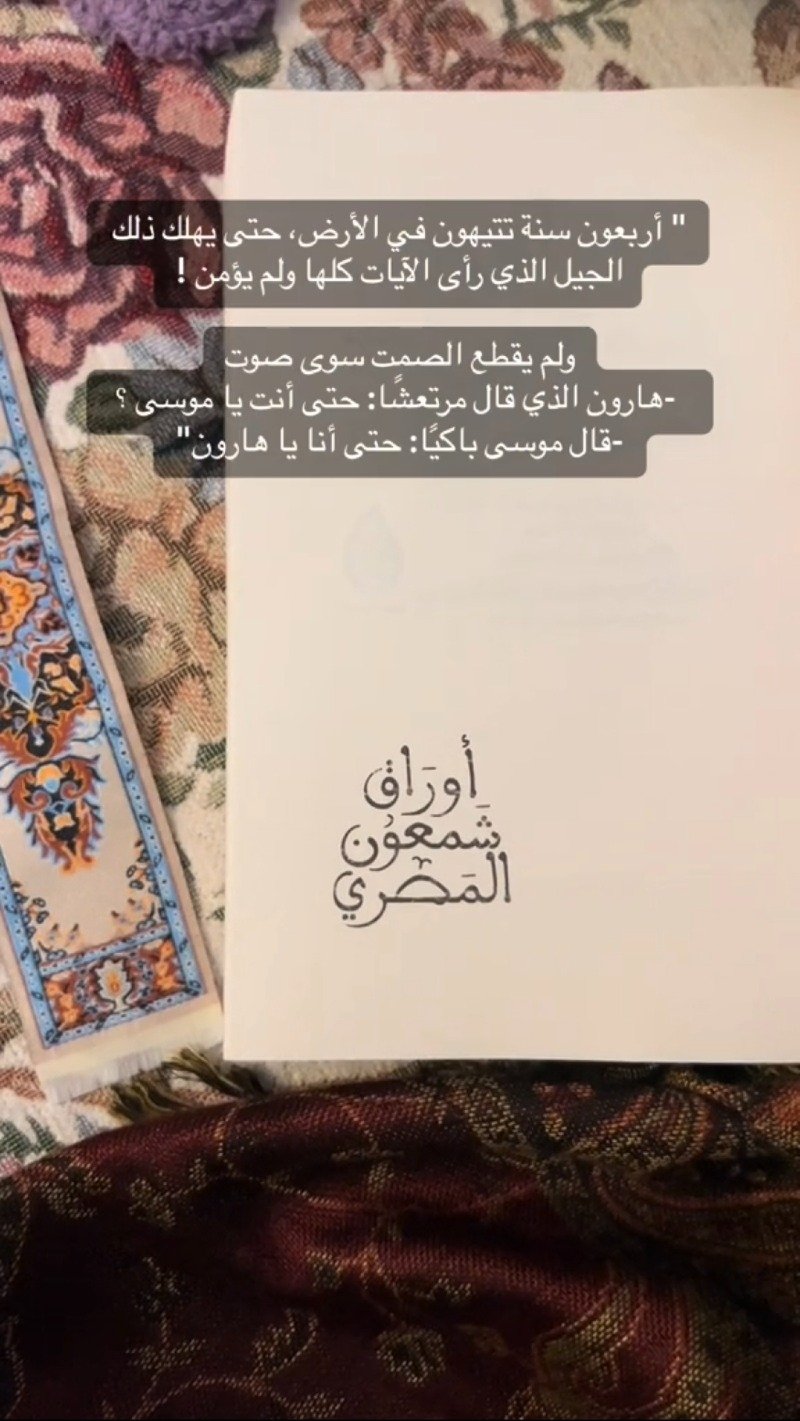 " أربعون سنة تتيهون في الأرض، حتى يهلك ذلك
الجيل الذي رأى الآيات كلها ولم يؤمن !
ولم يقطع الصمت سوى صوت
-هارون الذي قال مرتعشًا: حتى أنت يا موسى ؟
-قال موسى باكيًا: حتى أنا يا هارون"
أَورَاق
شَمعُون
المَصري